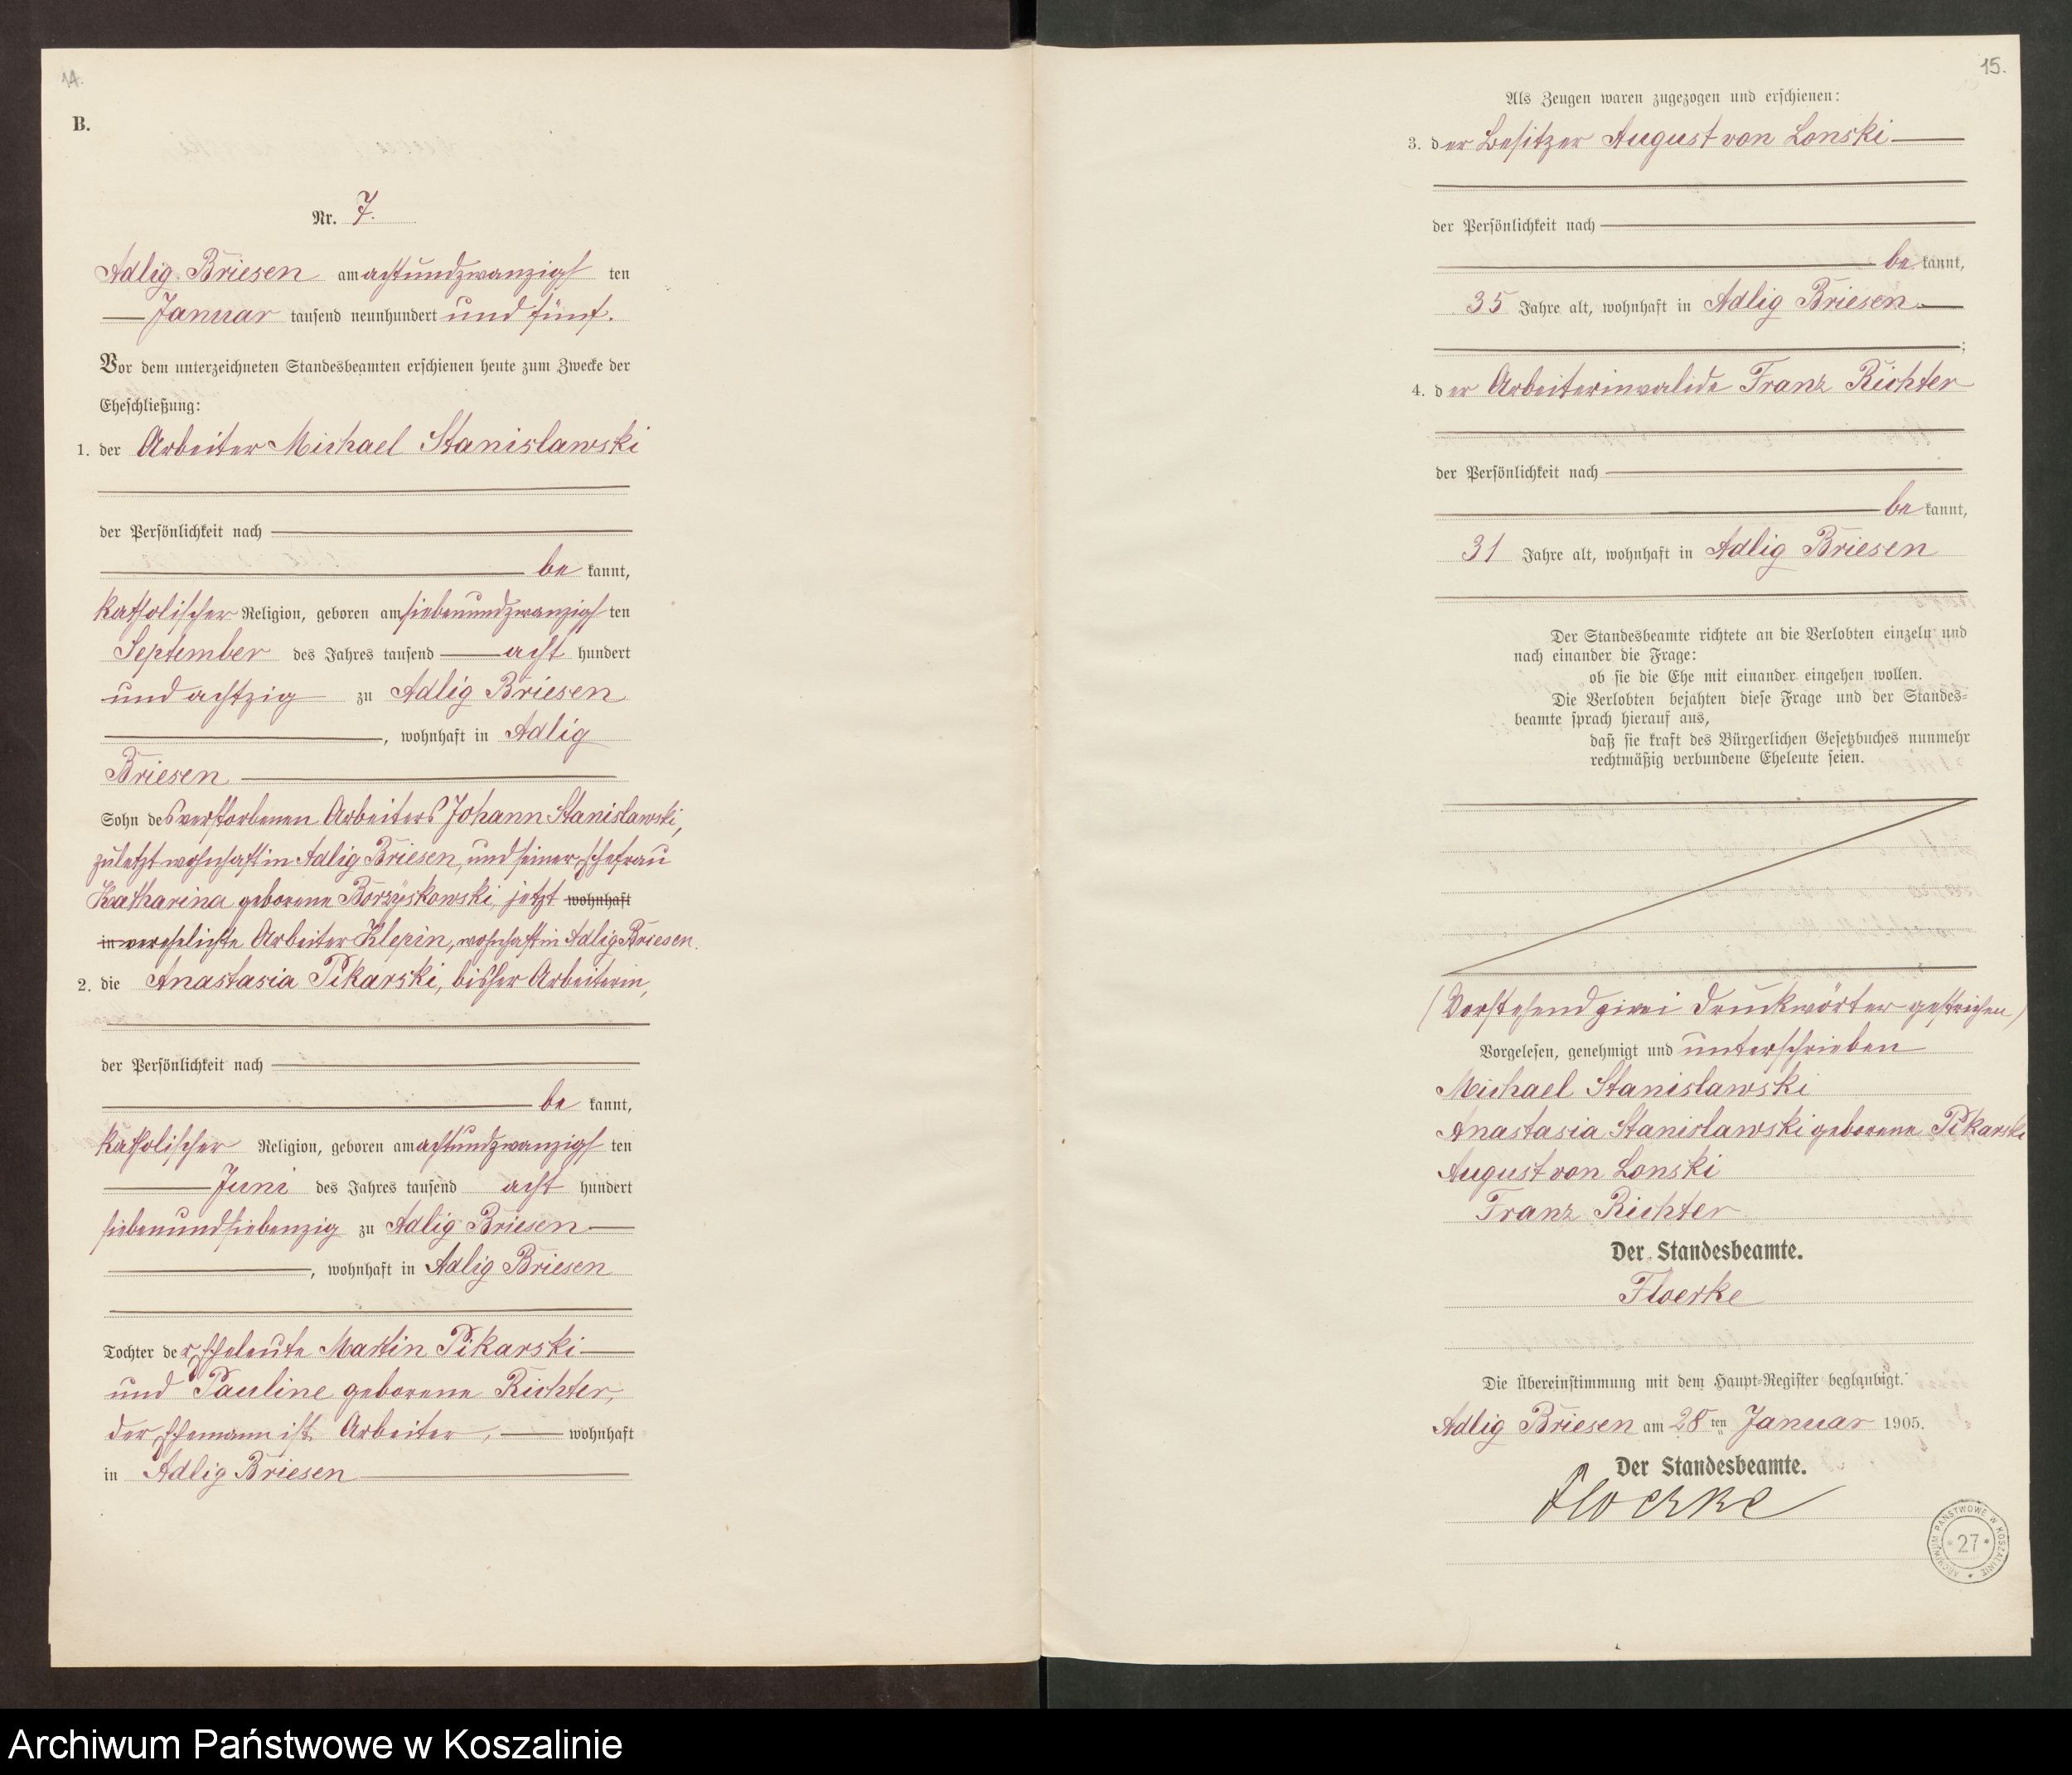 14.
B.
Nr. 7.
Adlig Briesen am achtundzwanzigsten
Januar tausend neunhundert und fünf.
Vor dem unterzeichneten Standesbeamten erschienen heute zum Zwecke der
Eheschließung:
1. der Arbeiter Michael Stanislawski
der Persönlichkeit nach
be kannt,
katholischer Religion, geboren am siebenundzwanzigsten
September des Jahres tausend acht hundert
und achtzig zu Adlig Briesen
, wohnhaft in Adlig
Briesen
Sohn des verstorbenen Arbeiters Johann Stanislawski,
zuletzt wohnhaft in Adlig Briesen, und seiner Ehefrau
Katharina geborene Borzyskowski, jetzt wohnhaft
in verehelichte Arbeiter Klepin, wohnhaft in Adlig Briesen.
2. die Anastasia Pikarski, bisher Arbeiterin,
der Persönlichkeit nach
be kannt,
katholischer Religion, geboren am achtundzwanzigsten
Juni des Jahres tausend acht hundert
siebenundsiebenzig zu Adlig Briesen
, wohnhaft in Adlig Briesen
Tochter der Eheleute Martin Pikarski
und Pauline geborene Richter,
der Ehemann ist Arbeiter, wohnhaft
in Adlig Briesen
15.
Als Zeugen waren zugezogen und erschienen:
3. der Besitzer August von Lonski
der Persönlichkeit nach
be kannt,
35 Jahre alt, wohnhaft in Adlig Briesen
;
4. der Arbeiterinvalide Franz Richter
der Persönlichkeit nach
be kannt,
31 Jahre alt, wohnhaft in Adlig Briesen
Der Standesbeamte richtete an die Verlobten einzeln und
nach einander die Frage:
ob sie die Ehe mit einander eingehen wollen.
Die Verlobten bejahten diese Frage und der Standes-
beamte sprach hierauf aus,
daß sie kraft des Bürgerlichen Gesetzbuches nunmehr
rechtmäßig verbundene Eheleute seien.
(Vorstehend zwei Druckwörter gestrichen)
Vorgelesen, genehmigt und unterschrieben
Michael Stanislawski
Anastasia Stanislawski geborene Pikarski
August von Lonski
Franz Richter
Der Standesbeamte.
Floerke
Die Übereinstimmung mit dem Haupt-Register beglaubigt.
Adlig Briesen am 28 ten Januar 1905.
Der Standesbeamte.
Floerke
ARCHIWUM PAŃSTWOWE W KOSZALINIE
* 27 *
Archiwum Państwowe w Koszalinie